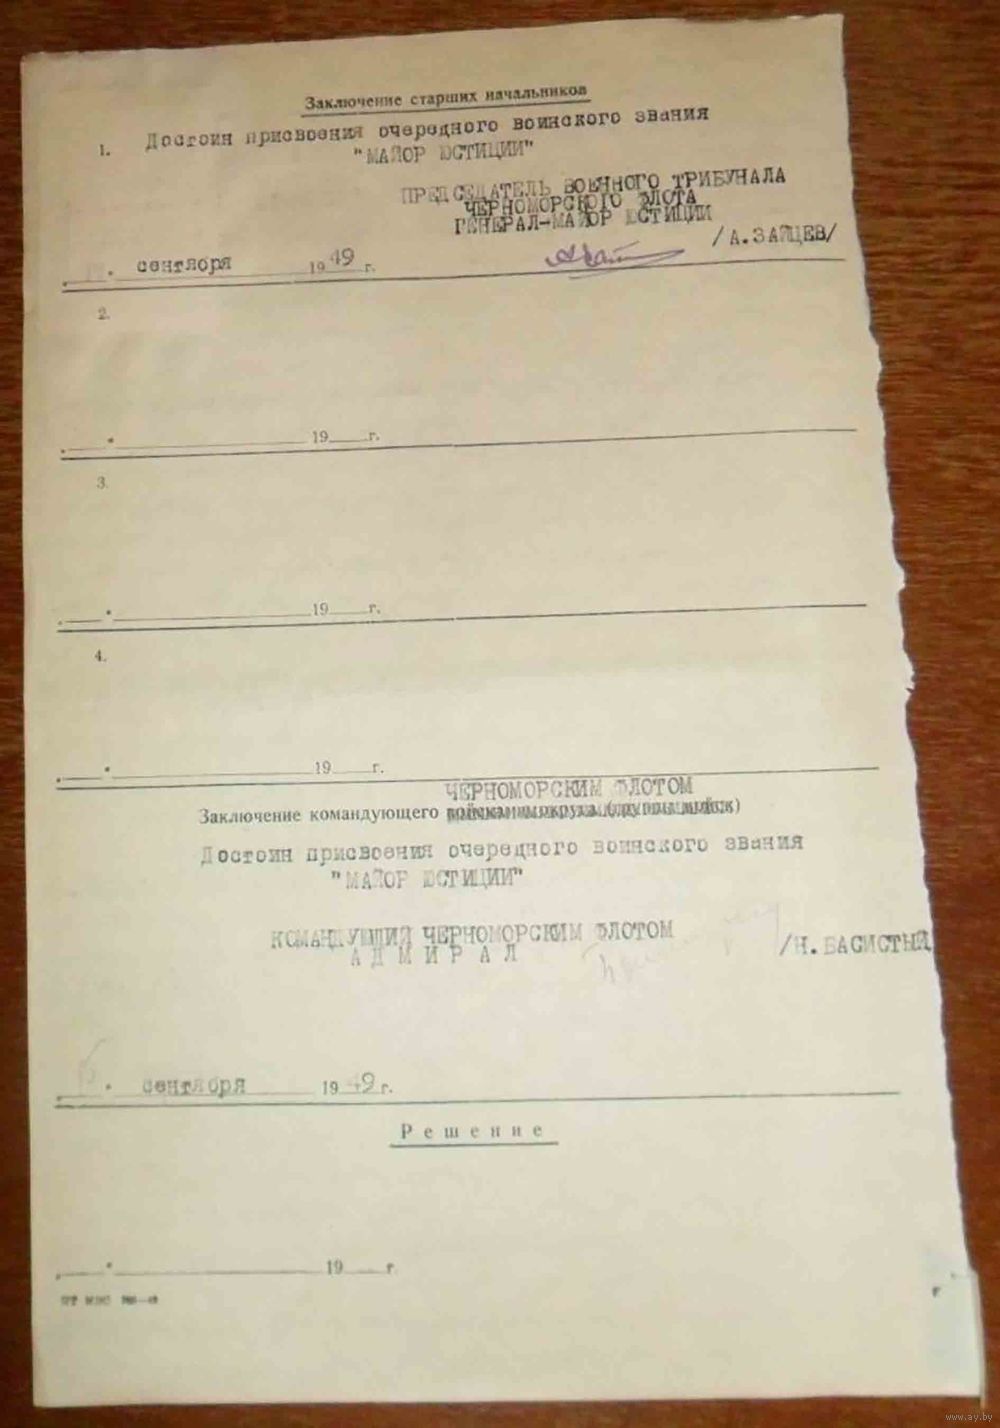 Заключение старших начальников
1. Достоин присвоения очередного воинского звания
"МАЙОР ЮСТИЦИИ"
ПРЕДСЕДАТЕЛЬ ВОЕННОГО ТРИБУНАЛА
ЧЕРНОМОРСКОГО ФЛОТА
ГЕНЕРАЛ-МАЙОР ЮСТИЦИИ
/А.ЗАЙЦЕВ/
сентября 1949 г.
2.
19 г.
3.
19 г.
4.
19 г.
ЧЕРНОМОРСКИМ ФЛОТОМ
Заключение командующего войсками округа
Достоин присвоения очередного воинского звания
"МАЙОР ЮСТИЦИИ"
КОМАНДУЮЩИЙ ЧЕРНОМОРСКИМ ФЛОТОМ
АДМИРАЛ /Н.БАСИСТЫЙ
сентября 1949 г.
Решение
19 г
г
www.ay.by